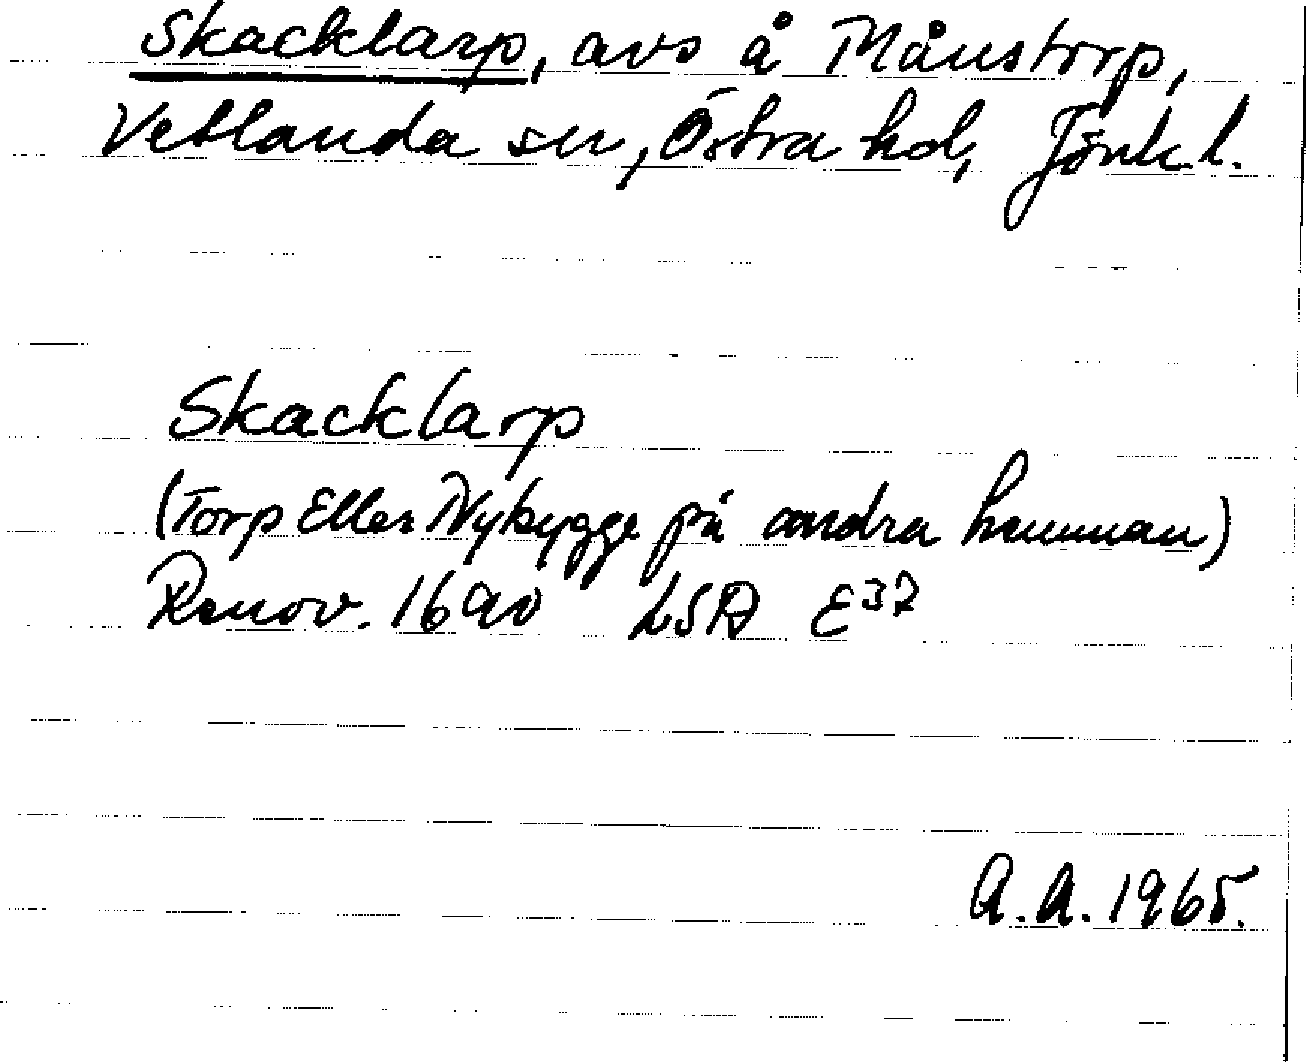 Skacklarp, avs å Månstorp,
Vetlanda sn, Östra hd, Jönk.l.
Skacklarp
(Torp Eller Nybygge på andra hemman)
Renov. 1690 LSA E37
A.A. 1965.